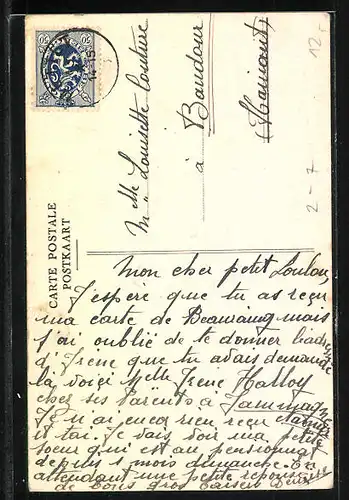 14-15
12.-
2-7
CARTE POSTALE
POSTKAART
Melle Louisette Couture
à Baudour
(Hainaut)
Mon cher petit Loulou,
J'espère que tu as reçu
ma carte de Beauraing mais
j'ai oublié de te donner l'adresse
d'Irène que tu avais demandée
la voici Melle Irène Halloy
chez ses Parents à
Je n'ai encor rien reçu
et toi. Je vais voir ma petite
soeur qui est au pensionnat
depuis 1 mois dimanche. En
attendant une petite réponse
de bons gros baisers